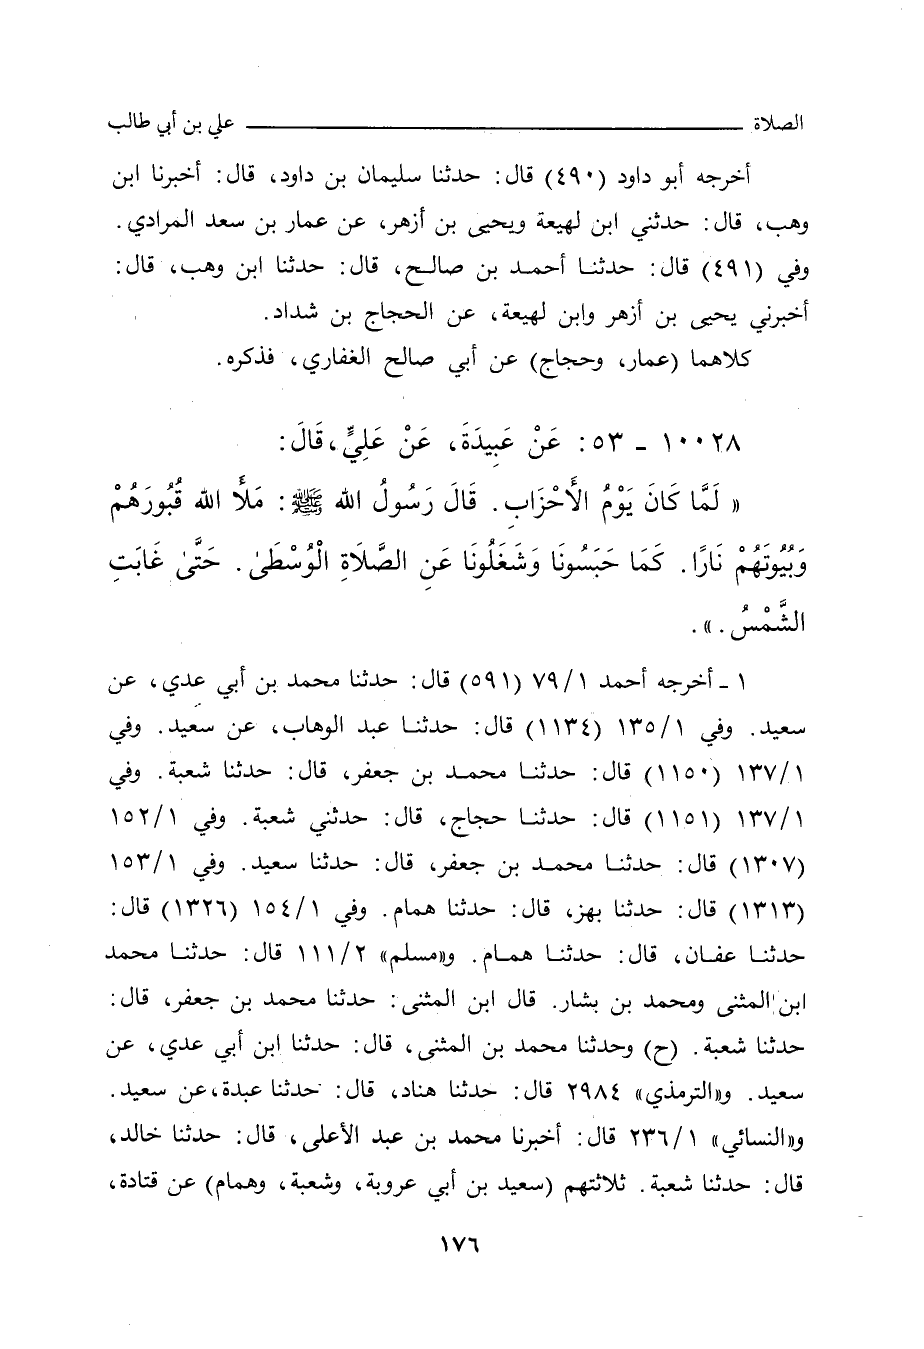 الصلاة ــــــــــــــــــــــــــــــــ علي بن أبي طالب
أخرجه أبو داود (٤٩٠) قال: حدثنا سليمان بن داود، قال: أخبرنا ابن
وهب، قال: حدثني ابن لهيعة ويحيى بن أزهر، عن عمار بن سعد المرادي.
وفي (٤٩١) قال: حدثنا أحمد بن صالح، قال: حدثنا ابن وهب، قال:
أخبرني يحيى بن أزهر وابن لهيعة، عن الحجاج بن شداد.
كلاهما (عمار، وحجاج) عن أبي صالح الغفاري، فذكره.
١٠٠٢٨ - ٥٣: عَنْ عَبِيدَةَ، عَنْ عَلِيٍّ، قَالَ:
« لَمَّا كَانَ يَوْمُ الأَحْزَابِ. قَالَ رَسُولُ الله ﷺ: مَلأَ الله قُبُورَهُمْ
وَبُيُوتَهُمْ نَارًا. كَمَا حَبَسُونَا وَشَغَلُونَا عَنِ الصَّلَاةِ الْوُسْطَىٰ. حَتَّىٰ غَابَتِ
الشَّمْسُ.».
١ - أخرجه أحمد ٧٩/١ (٥٩١) قال: حدثنا محمد بن أبي عدي، عن
سعيد. وفي ١٣٥/١ (١١٣٤) قال: حدثنا عبد الوهاب، عن سعيد. وفي
١٣٧/١ (١١٥٠) قال: حدثنا محمد بن جعفر، قال: حدثنا شعبة. وفي
١٣٧/١ (١١٥١) قال: حدثنا حجاج، قال: حدثني شعبة. وفي ١٥٢/١
(١٣٠٧) قال: حدثنا محمد بن جعفر، قال: حدثنا سعيد. وفي ١٥٣/١
(١٣١٣) قال: حدثنا بهز، قال: حدثنا همام. وفي ١٥٤/١ (١٣٢٦) قال:
حدثنا عفان، قال: حدثنا همام. و«مسلم» ١١١/٢ قال: حدثنا محمد
ابن المثنى ومحمد بن بشار. قال ابن المثنى: حدثنا محمد بن جعفر، قال:
حدثنا شعبة. (ح) وحدثنا محمد بن المثنى، قال: حدثنا ابن أبي عدي، عن
سعيد. و«الترمذي» ٢٩٨٤ قال: حدثنا هناد، قال: حدثنا عبدة، عن سعيد.
و«النسائي» ٢٣٦/١ قال: أخبرنا محمد بن عبد الأعلى، قال: حدثنا خالد،
قال: حدثنا شعبة. ثلاثتهم (سعيد بن أبي عروبة، وشعبة، وهمام) عن قتادة،
١٧٦